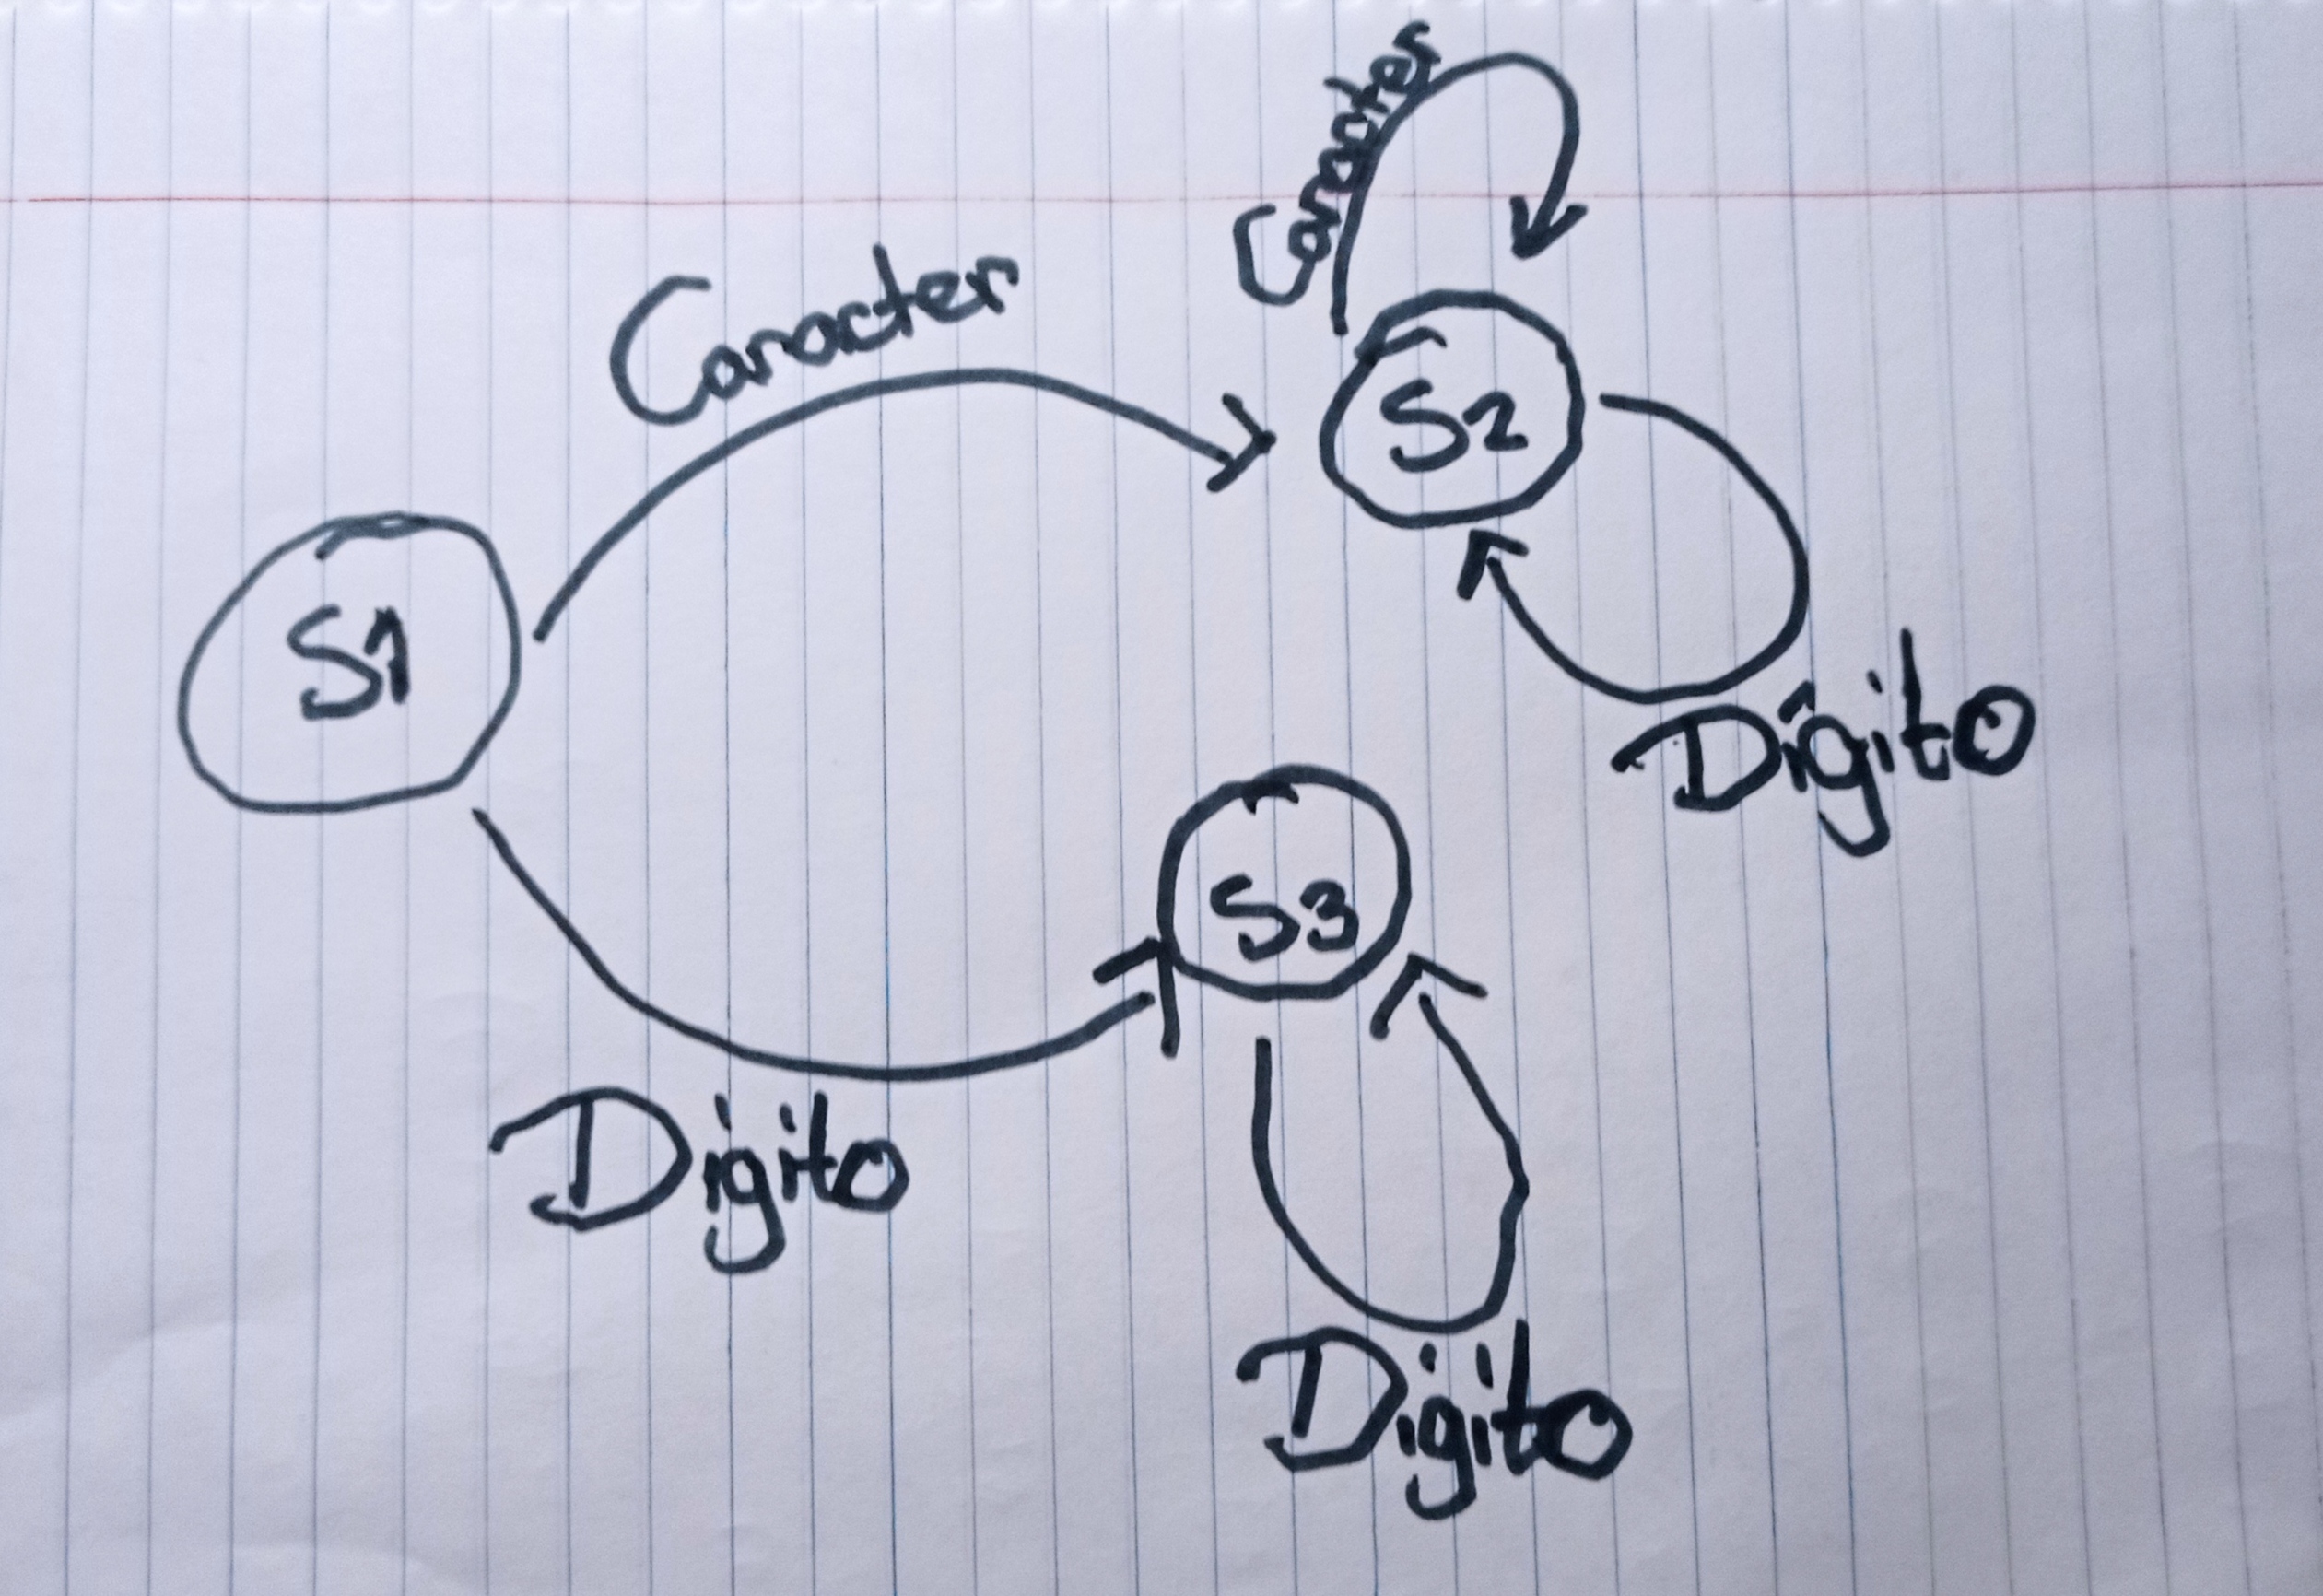 Caracter
Caracter
S2
S1
Digito
S3
Digito
Digito